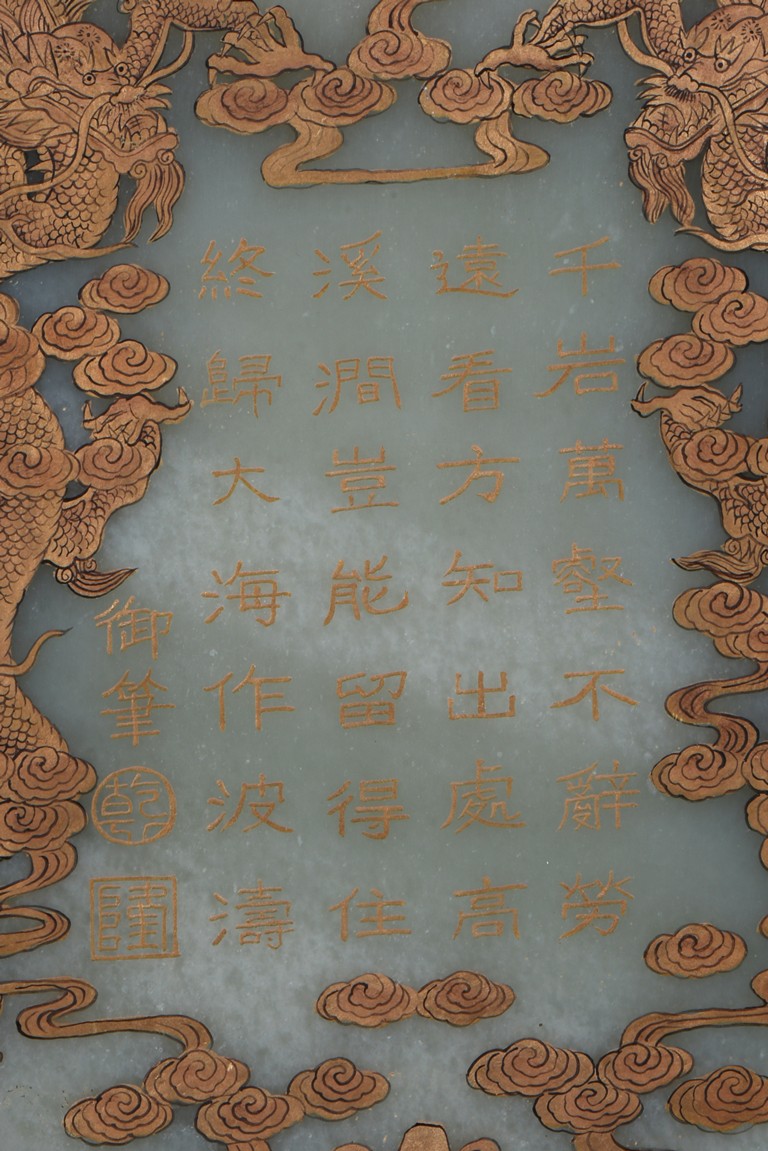 千岩萬壑不辭勞
遠看方知出處高
溪澗豈能留得住
終歸大海作波濤
御筆
乾
隆